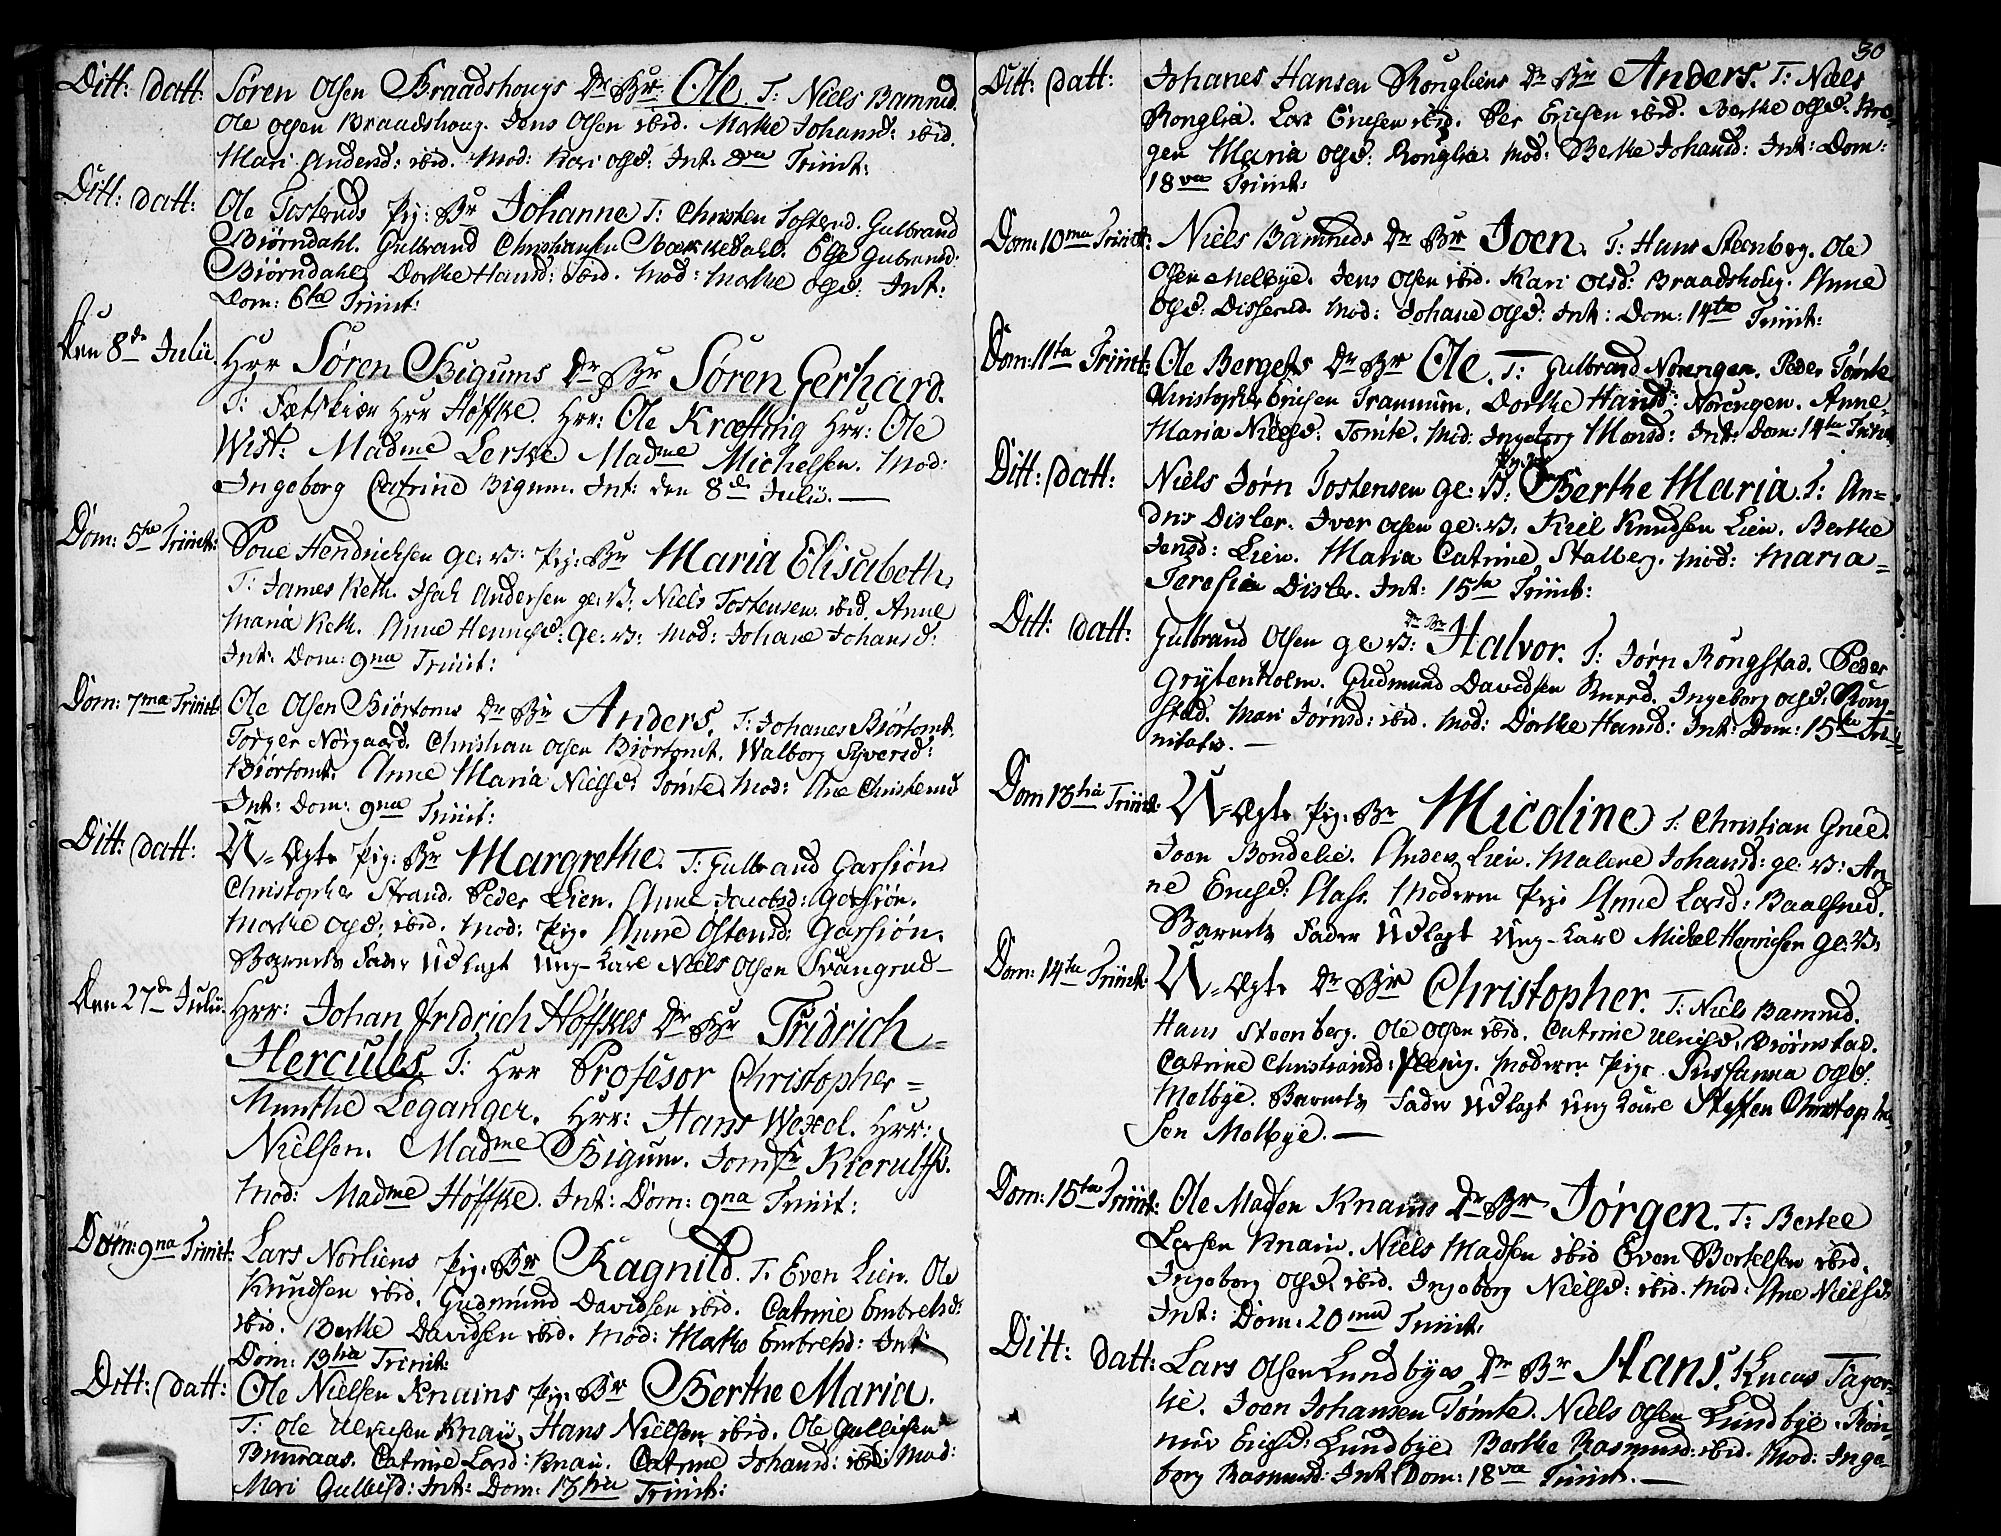 Ditt: datt: Sören Olsen Braadshougs Dr. Br: Ole. T: Niels Bamrud.
Ole Olsen Braadshoug. Jens Olsen ibid. Marthe Johansd: ibid.
Mari Andersd: ibid. Mod: Kari Olsd: Int: 8va Trinit:
Ditt: datt: Ole Tosteruds Pig: Br Johanne T: Christen Tosterud. Gulbrand
Biörndahl. Gulbrand Christiansen Boxsedahl. Else Gulbransd:
Biörndahl. Dorthe Hansd: ibid. Mod: Marthe Olsd: Int:
Dom: 6ta Trinit:
Den 8de Julii. Hrr Søren Bigums Dr. Br Søren Gerhard.
T: Hrr Høffke. Hrr: Ole Kræfting Hrr: Ole
Wist. Madme Lerske Madme Michelsen. Mod:
Ingeborg Catrine Bigum. Int: den 8de Julii. —
Dom: 5ta Trinit: Poue Hendrichsen ge: v: Pig: Br Maria Elisabeth
T: James Keth. Isak Andersen ge: v: Niels Tostensen ibid. Anne
Maria Keth. Anne Henrichsd: ge: v: Mod: Johane Johansd:
Int: Dom: 9na Trinit:
Dom: 7ma Trinit: Ole Olsen Biörtoms Dr Br Anders. T: Johanes Biörtomt.
Torger Norgaard. Christian Olsen Biörtomt. Walborg Syversd:
Biörtomt. Anne Maria Nielsd: Tömte. Mod: Ane Christensd
Int: Dom: 9na Trinit:
Ditt: datt: U=Ægte Pig: Br Margrethe. T: Gulbrand Garsiön
Christopher Strand. Peder Lien. Anne Jacobsd: Garsiön.
Marthe Olsd: ibid. Mod: Pige Anne Ostensd: Garsiön.
Barnets Fader Udlagt Ung-Karl Niels Olsen Svangrud—
Den 27de Julii. Hrr: Johan Fridrich Höffkes Dr Br Fridrich
Hercules T: Hrr Profesor Christopher=
Munthe Leganger. Hrr: Hans Wexel. Hrr:
Nielsen. Madme Bigum. Jomfr Kierulff.
Mod: Madme Høffke. Int: Dom: 9na Trinit:
Dom: 9na Trinit: Lars Norliens Pig: Br Ragnild. T. Even Lien. Ole
Knudsen ibid. Gudmund Davidsen ibid. Catrine Embrehsd:
ibid. Berthe Davidsen ibid. Mod: Marthe Embrehsd: Int:
Dom: 13tia Trinit:
Ditt: datt: Ole Nielsen Knains Pig: Br Berthe Maria.
T: Ole Ulrichsen Knai, Hans Nielsen ibid. Ole Gullichsen
Bruraas. Catrine Larsd: Knai. Catrine Johansd: ibid: Mod:
Mari Gulbrsd: Int: Dom: 13tia Trinit:
30
Ditt: datt: Johanes Hansen Rongliens Dr Br Anders. T: Niels
Ronglia. Lars Erichsen ibid. Per Erichsen ibid. Berthe Olsd: Kro-
gen Maria Olsd: Ronglia. Mod: Berthe Johansd: Int: Dom:
18va Trinit:
Dom: 10ma Trinit: Niels Bamruds Dr Br Joen. T: Hans Steenberg. Ole
Olsen Melbye. Jens Olsen ibid. Kari Olsd: Braadshoug. Anne
Olsd: Disserud. Mod: Johane Olsd: Int: Dom: 14ta Trinit:
Dom: 11ta Trinit: Ole Bergets Dr Br Ole. T: Gulbrand Norengen. Peder Tömte
Christopher Erichsen Tranmim. Dorthe Hansd: Norengen. Anne
Maria Nielsd: Tomte. Mod: Ingeborg Monsd: Int: Dom: 14ta Trinit
Ditt: datt: Niels Jörn Tostensen ge: v: Pig: Br Berthe Maria. T: An=
dris Disler. Iver Olsen ge: v: Kiel Knudsen Lien. Berthe
Jensd: Lien. Maria Catrine Stalberg. Mod: Maria=
Teresia Disler. Int: 15ta Trinit:
Ditt: datt: Gulbrand Olsen ge: v: Dr Br Halvor. T: Jørn Rongstad. Peder
Grytenholm. Gudmund Davidsen Rued. Ingeborg Olsd: Rong-
stad. Mari Jørnsd: ibid. Mod: Dorthe Hansd: Int: Dom: 15ta Tri-
nitatis. —
Dom 13tia Trinit: U=Ægte Pig: Br Micoline T: Christian Gnee.
Joen Bondelie. Anders Lien. Malene Johansd: ge: v: An-
ne Erichsd: Aass. Moderen Pige Anne Larsd: Baalsrud.
Barnets Fader Udlagt Ung-Karl Michel Henrichsen ge: v:
Dom: 14ta Trinit: U=Ægte Dr Br Christopher. T: Niels Bamrud.
Hans Steenberg. Ole Olsen ibid. Catrine Ulrichsd: Biörnstad.
Catrine Christiansd: Moderen Pige Sussanna Olsd:
Melbye. Barnets Fader Udlagt Ung Karl Steffen Christopher
sen Melbye. —
Dom: 15ta Trinit: Ole Madsen Knains Dr Br Jörgen. T: Bertel
Larsen Knain. Niels Madsen ibid Even Bertelsen ibid.
Ingeborg Olsd: ibid. Ingeborg Nielsd: ibid. Mod: Ane Nielsd:
Int: Dom: 20ma Trinit:
Ditt: datt: Lars Olsen Lundbyes Dr Br Hans. T: Lucas Fager-
lie. Joen Johansen Tömte. Niels Olsen Lundbye. Rön-
nov Erichsd: Lundbye Berthe Rasmusd: ibid. Mod: Inge-
borg Rasmusd: Int: Dom: 18va Trinit. —